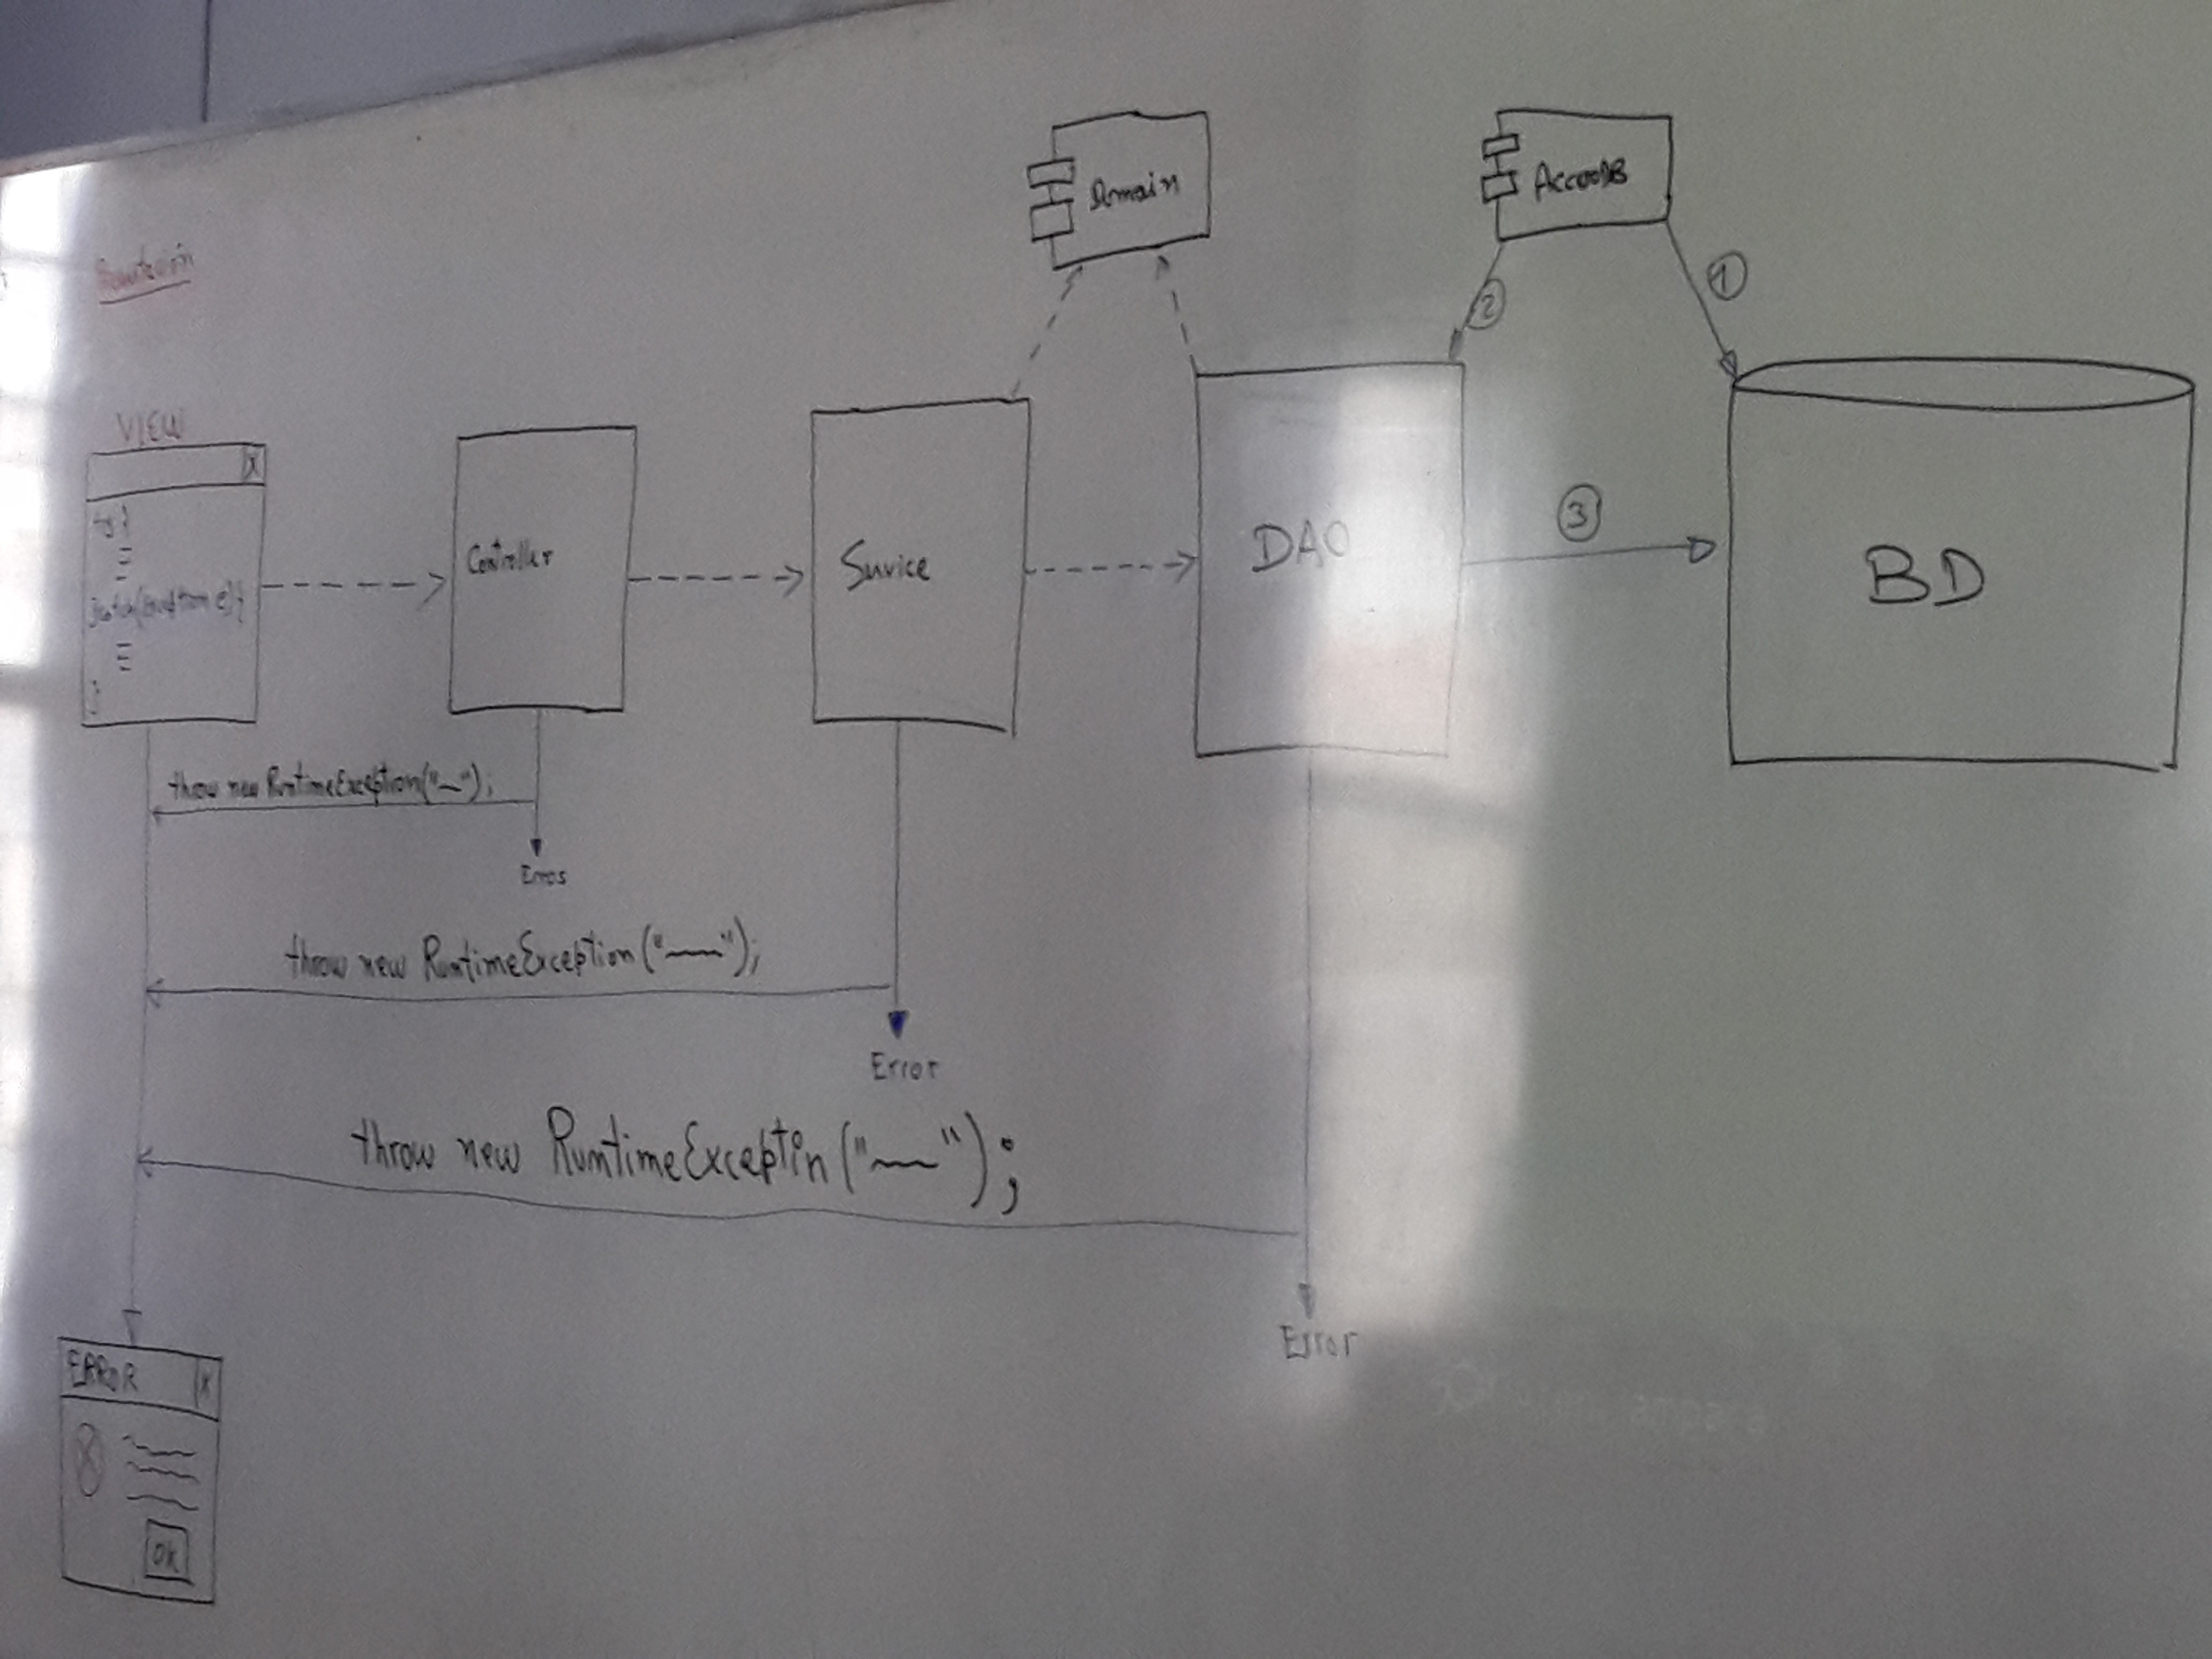 Domain
AccesoDB
①
②
VIEW
X
try{
}catch(Exception e){
}
Controller
Service
DAO
③
BD
throw new RuntimeException("—");
Error
throw new RuntimeException("——");
Error
throw new RuntimeExceptin("—");
Error
ERROR
X
X
OK